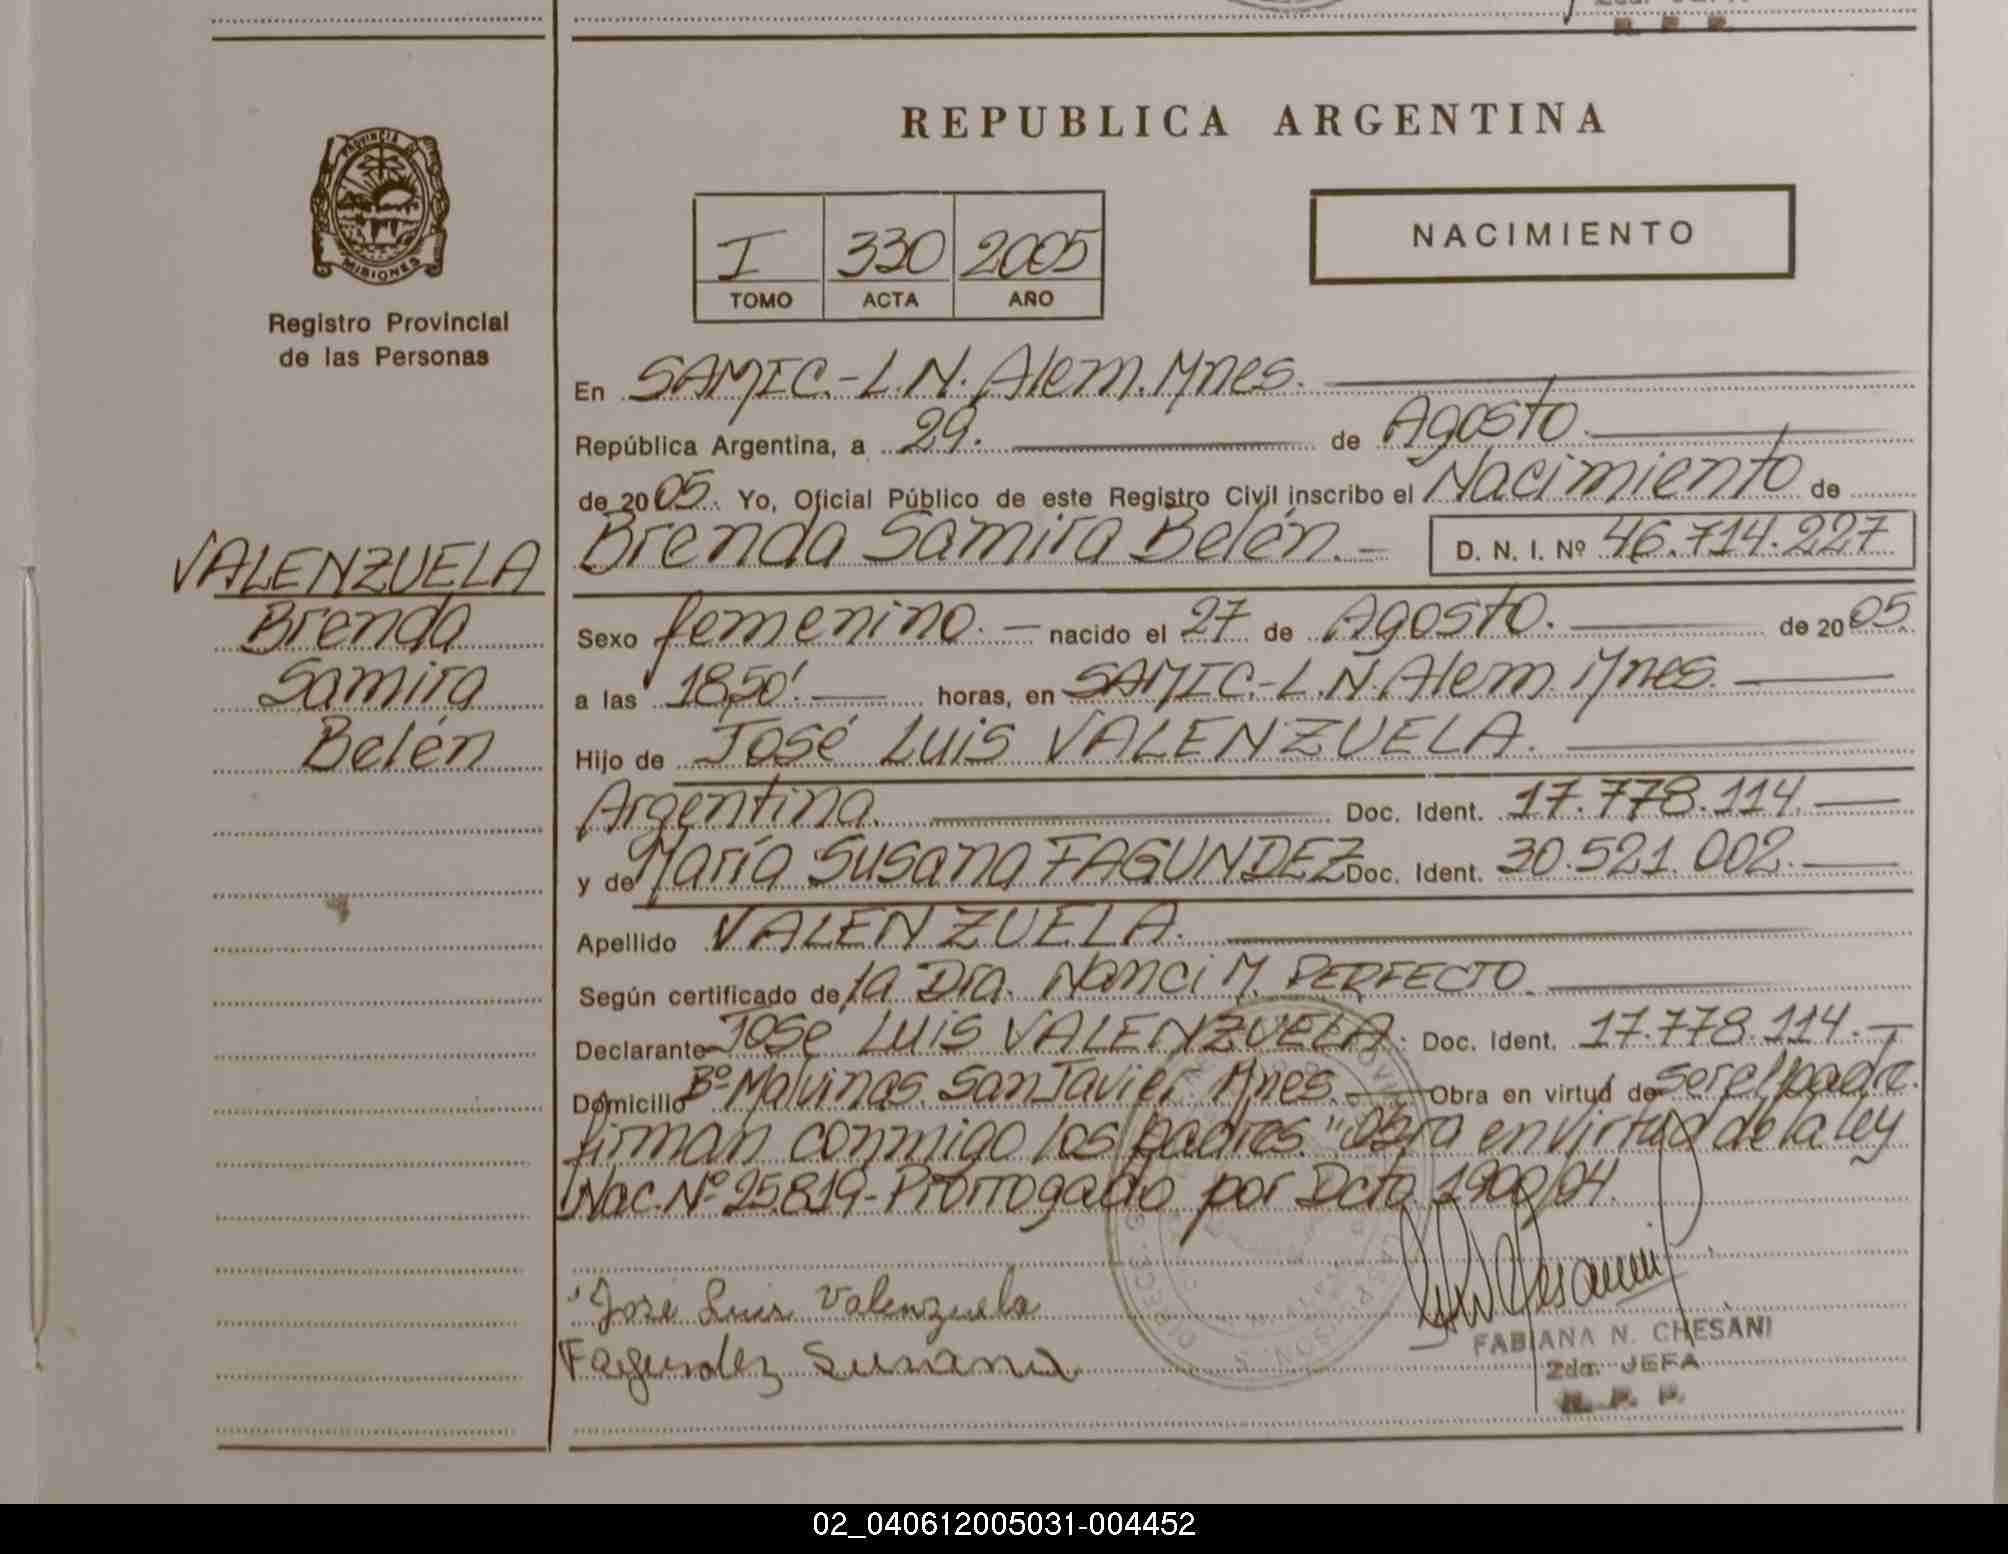 REPUBLICA ARGENTINA
PROVINCIA DE MISIONES
Registro Provincial
de las Personas
I 330 2005
TOMO ACTA AÑO
NACIMIENTO
En SAMIC.-L.N. Alem. Mnes.
República Argentina, a 29. de Agosto.
de 2005. Yo, Oficial Público de este Registro Civil inscribo el Nacimiento de
Brenda Samira Belén.- D. N. I. Nº 46.714.227
VALENZUELA
Brenda
Samira
Belén
Sexo femenino.- nacido el 27 de Agosto. de 2005.
a las 18,50'. horas, en SAMIC.-L.N. Alem. Mnes.
Hijo de José Luis VALENZUELA.
Argentina. Doc. Ident. 17.778.114.
y de María Susana FAGUNDEZ Doc. Ident. 30.521.002.
Apellido VALENZUELA.
Según certificado de la Dra. Nanci M. PERFECTO.
Declarante José LUIS VALENZUELA. Doc. Ident. 17.778.114.
Domicilio Bº Malvinas. San Javier. Mnes. Obra en virtud de ser el padre.
firman conmigo los padres. "Obra en virtud de la ley
Nac. Nº 25.819- Prorrogado por Dcto. 1900/04.
José Luis Valenzuela
Fagundez Susana
FABIANA N. CHESANI
2da. JEFA
R. P. P.
02_040612005031-004452